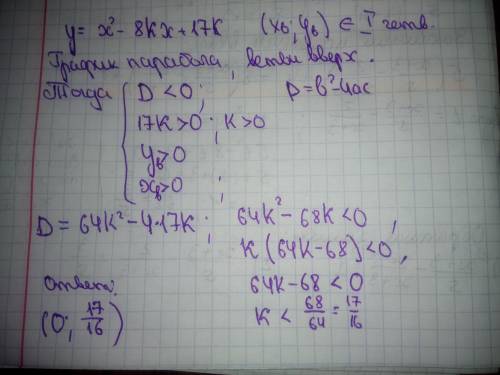 y = x² - 8Kx + 17K (xв; yв) ∈ I четв.
График парабола, ветви вверх.
Тогда { D < 0; D = b² - 4ac
17K > 0; K > 0
yв > 0
xв > 0 ;
D = 64K² - 4·17K ; 64K² - 68K < 0 ,
K (64K - 68) < 0 ,
64K - 68 < 0
K < 68/64 = 17/16
Ответ:
(0; 17/16)